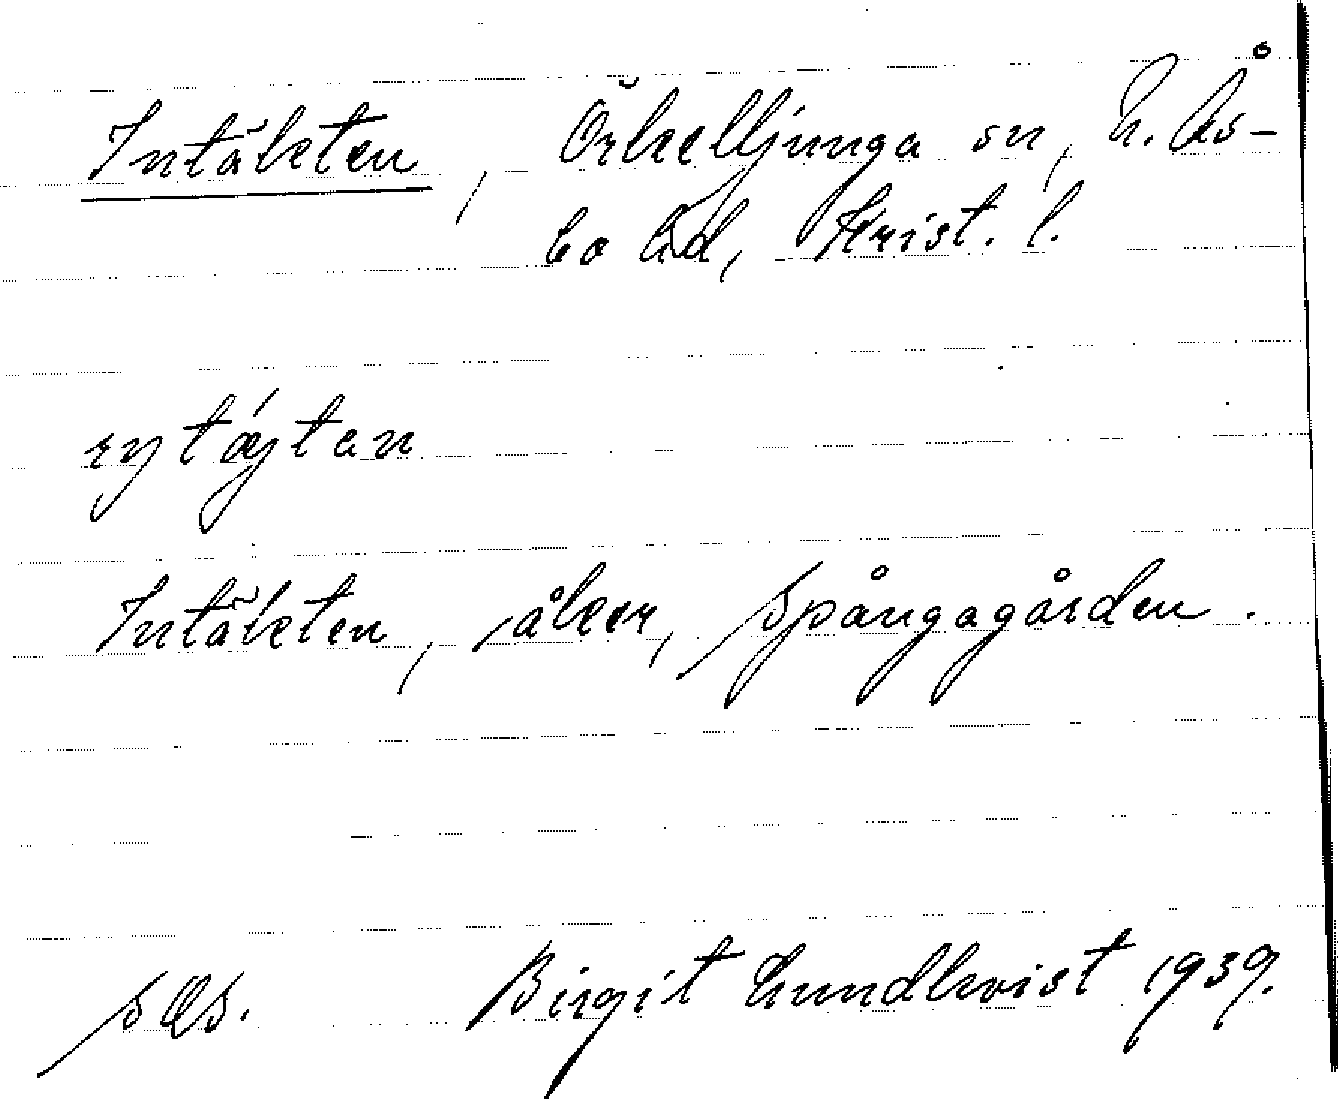 Intäkten, Örkelljunga sn, N. Ås-
bo hd, Krist. l.
Intäkten, åker, Spångagården.
Birgit Lundkvist 1939.